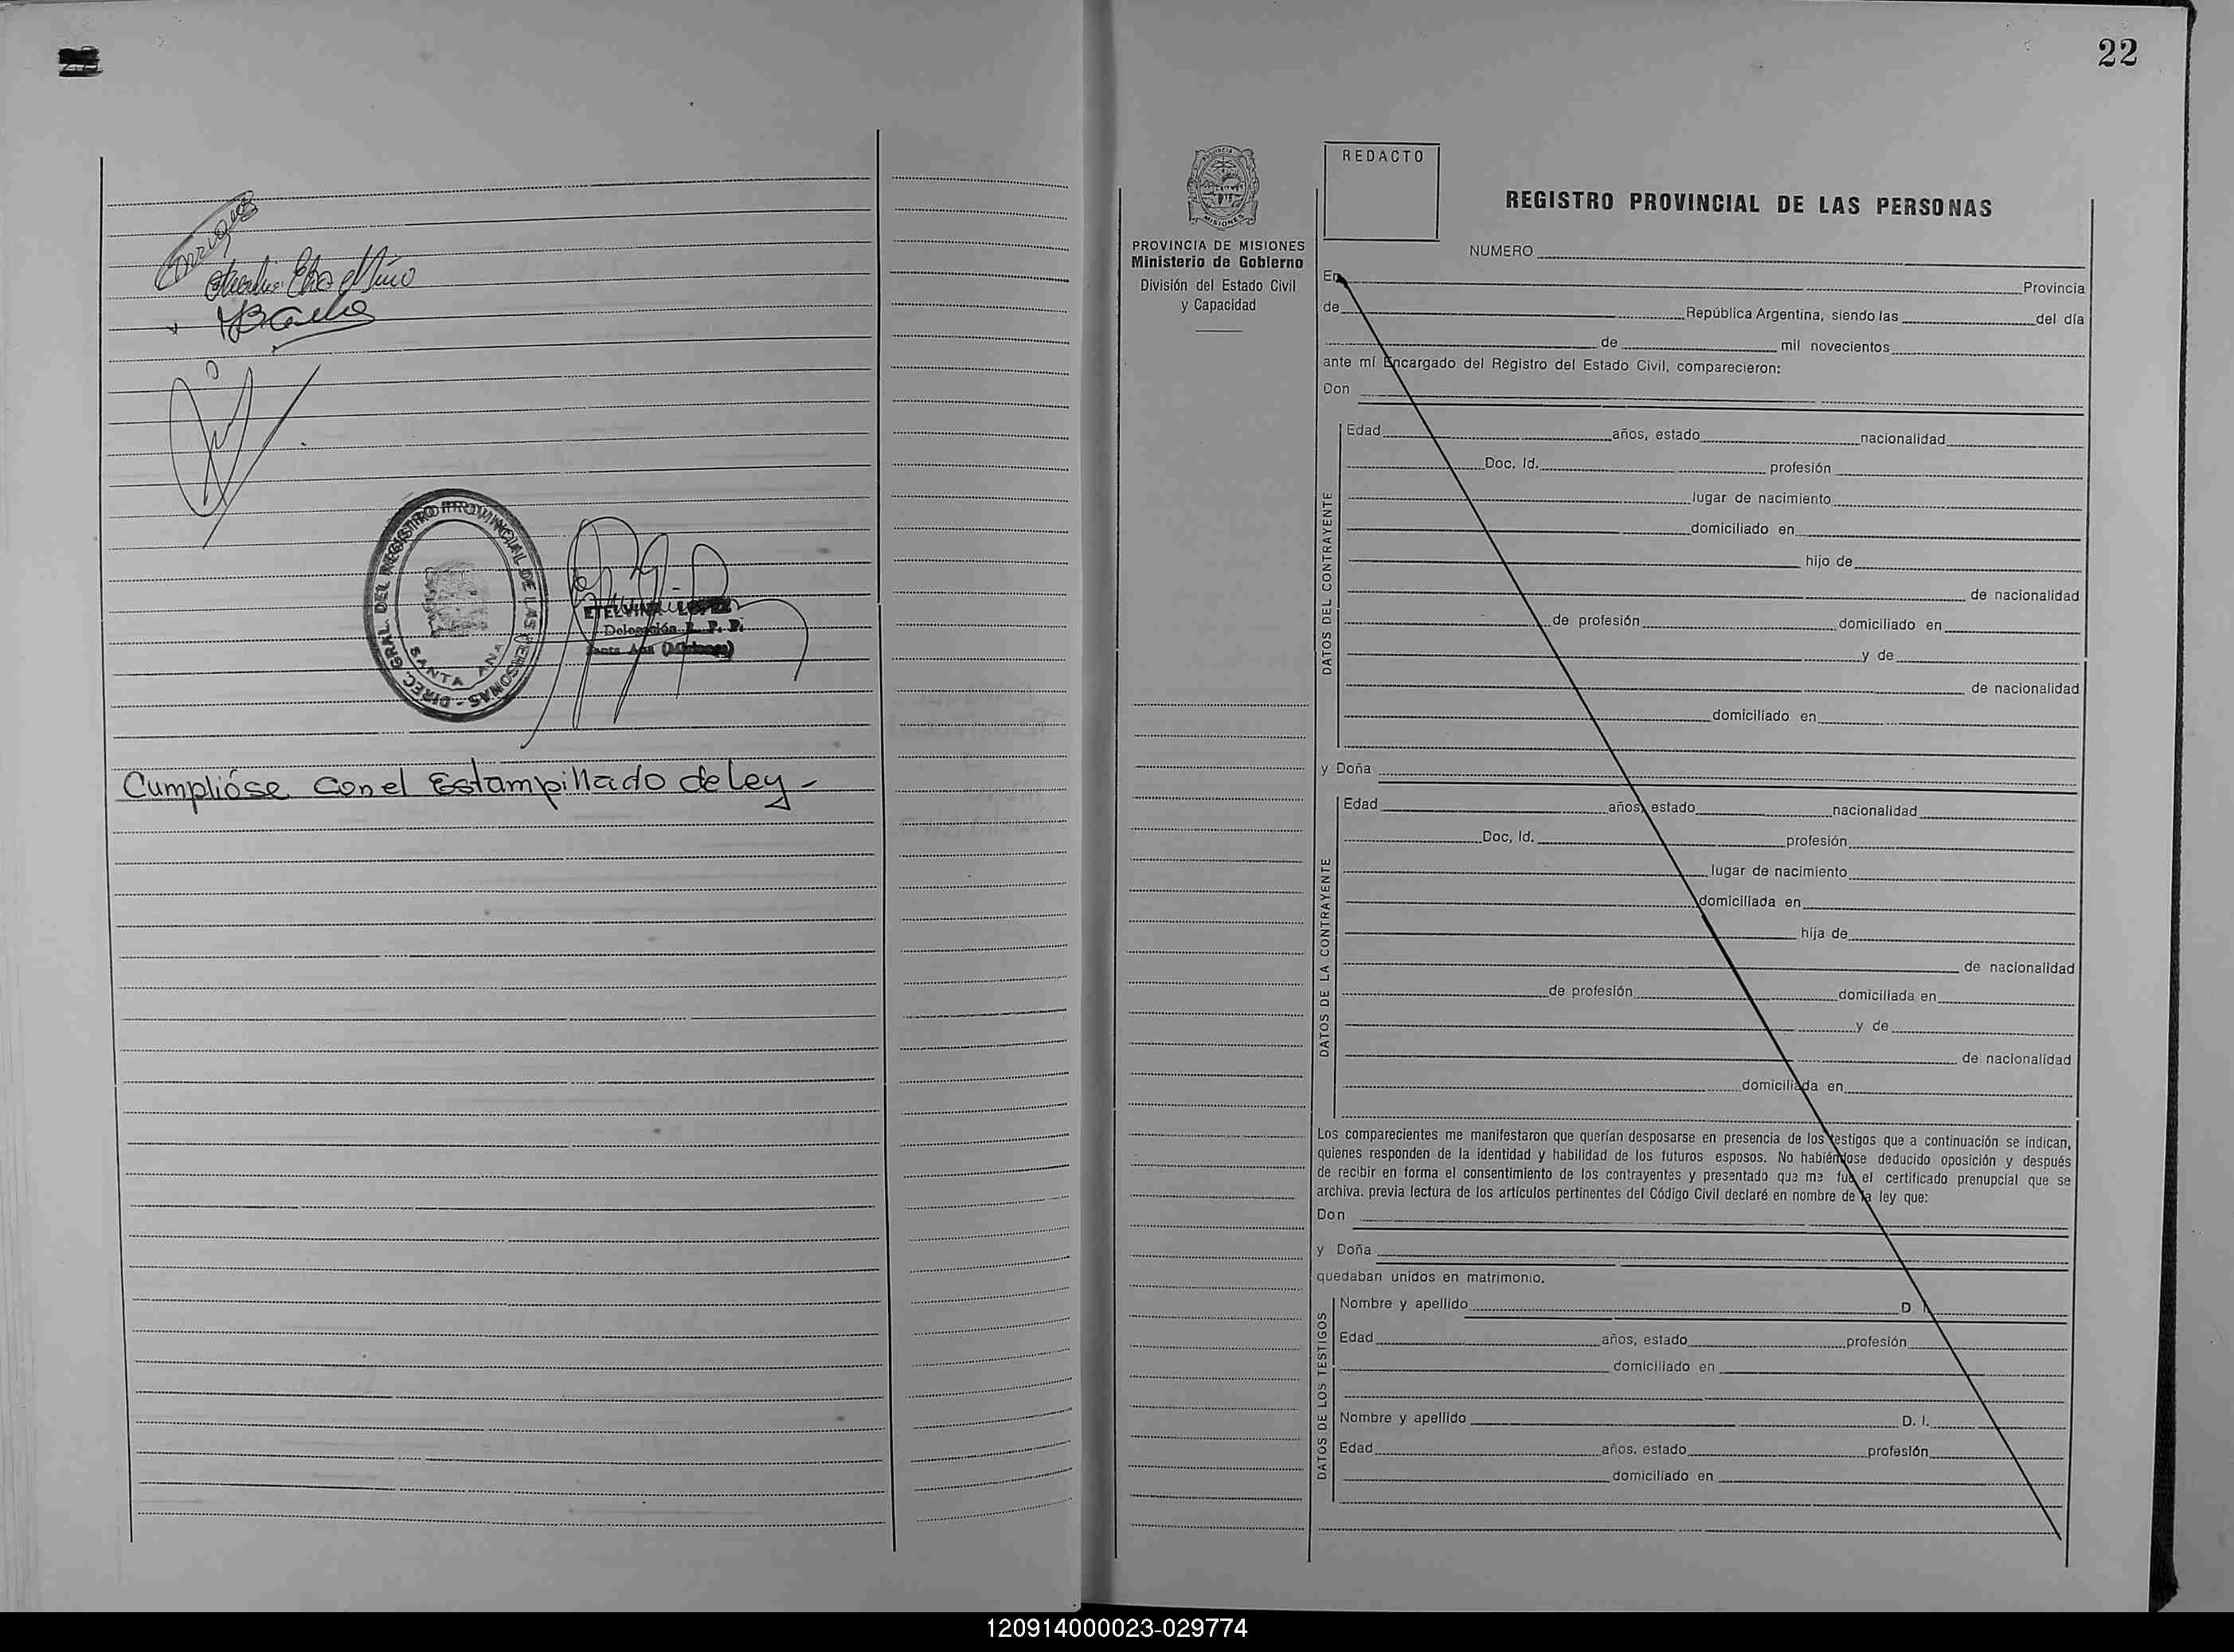 Cumplióse con el Estampillado de Ley -
DIREC. GRAL. DEL REGISTRO PROVINCIAL DE LAS PERSONAS -
SANTA ANA
ETELVINA LOPEZ
Delegación R. P. P.
Santa Ana (Misiones)
22
PROVINCIA DE MISIONES
Ministerio de Gobierno
División del Estado Civil
y Capacidad
REDACTO
REGISTRO PROVINCIAL DE LAS PERSONAS
NUMERO
En Provincia
de República Argentina, siendo las del día
de mil novecientos
ante mí Encargado del Registro del Estado Civil, comparecieron:
Don
DATOS DEL CONTRAYENTE
Edad años, estado nacionalidad
Doc. Id. profesión
lugar de nacimiento
domiciliado en
hijo de
de nacionalidad
de profesión domiciliado en
y de
de nacionalidad
domiciliado en
y Doña
DATOS DE LA CONTRAYENTE
Edad años, estado nacionalidad
Doc, Id. profesión
lugar de nacimiento
domiciliada en
hija de
de nacionalidad
de profesión domiciliada en
y de
de nacionalidad
domiciliada en
Los comparecientes me manifestaron que querían desposarse en presencia de los testigos que a continuación se indican,
quienes responden de la identidad y habilidad de los futuros esposos. No habiéndose deducido oposición y después
de recibir en forma el consentimiento de los contrayentes y presentado que me fue el certificado prenupcial que se
archiva. previa lectura de los artículos pertinentes del Código Civil declaré en nombre de la ley que:
Don
y Doña
quedaban unidos en matrimonio.
DATOS DE LOS TESTIGOS
Nombre y apellido D. I.
Edad años, estado profesión
domiciliado en
Nombre y apellido D. I.
Edad años. estado profesión
domiciliado en
120914000023-029774